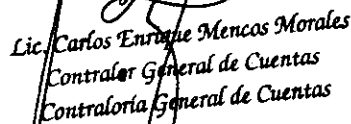 Lic. Carlos Enrique Mencos Morales
Contralor General de Cuentas
Contraloría General de Cuentas